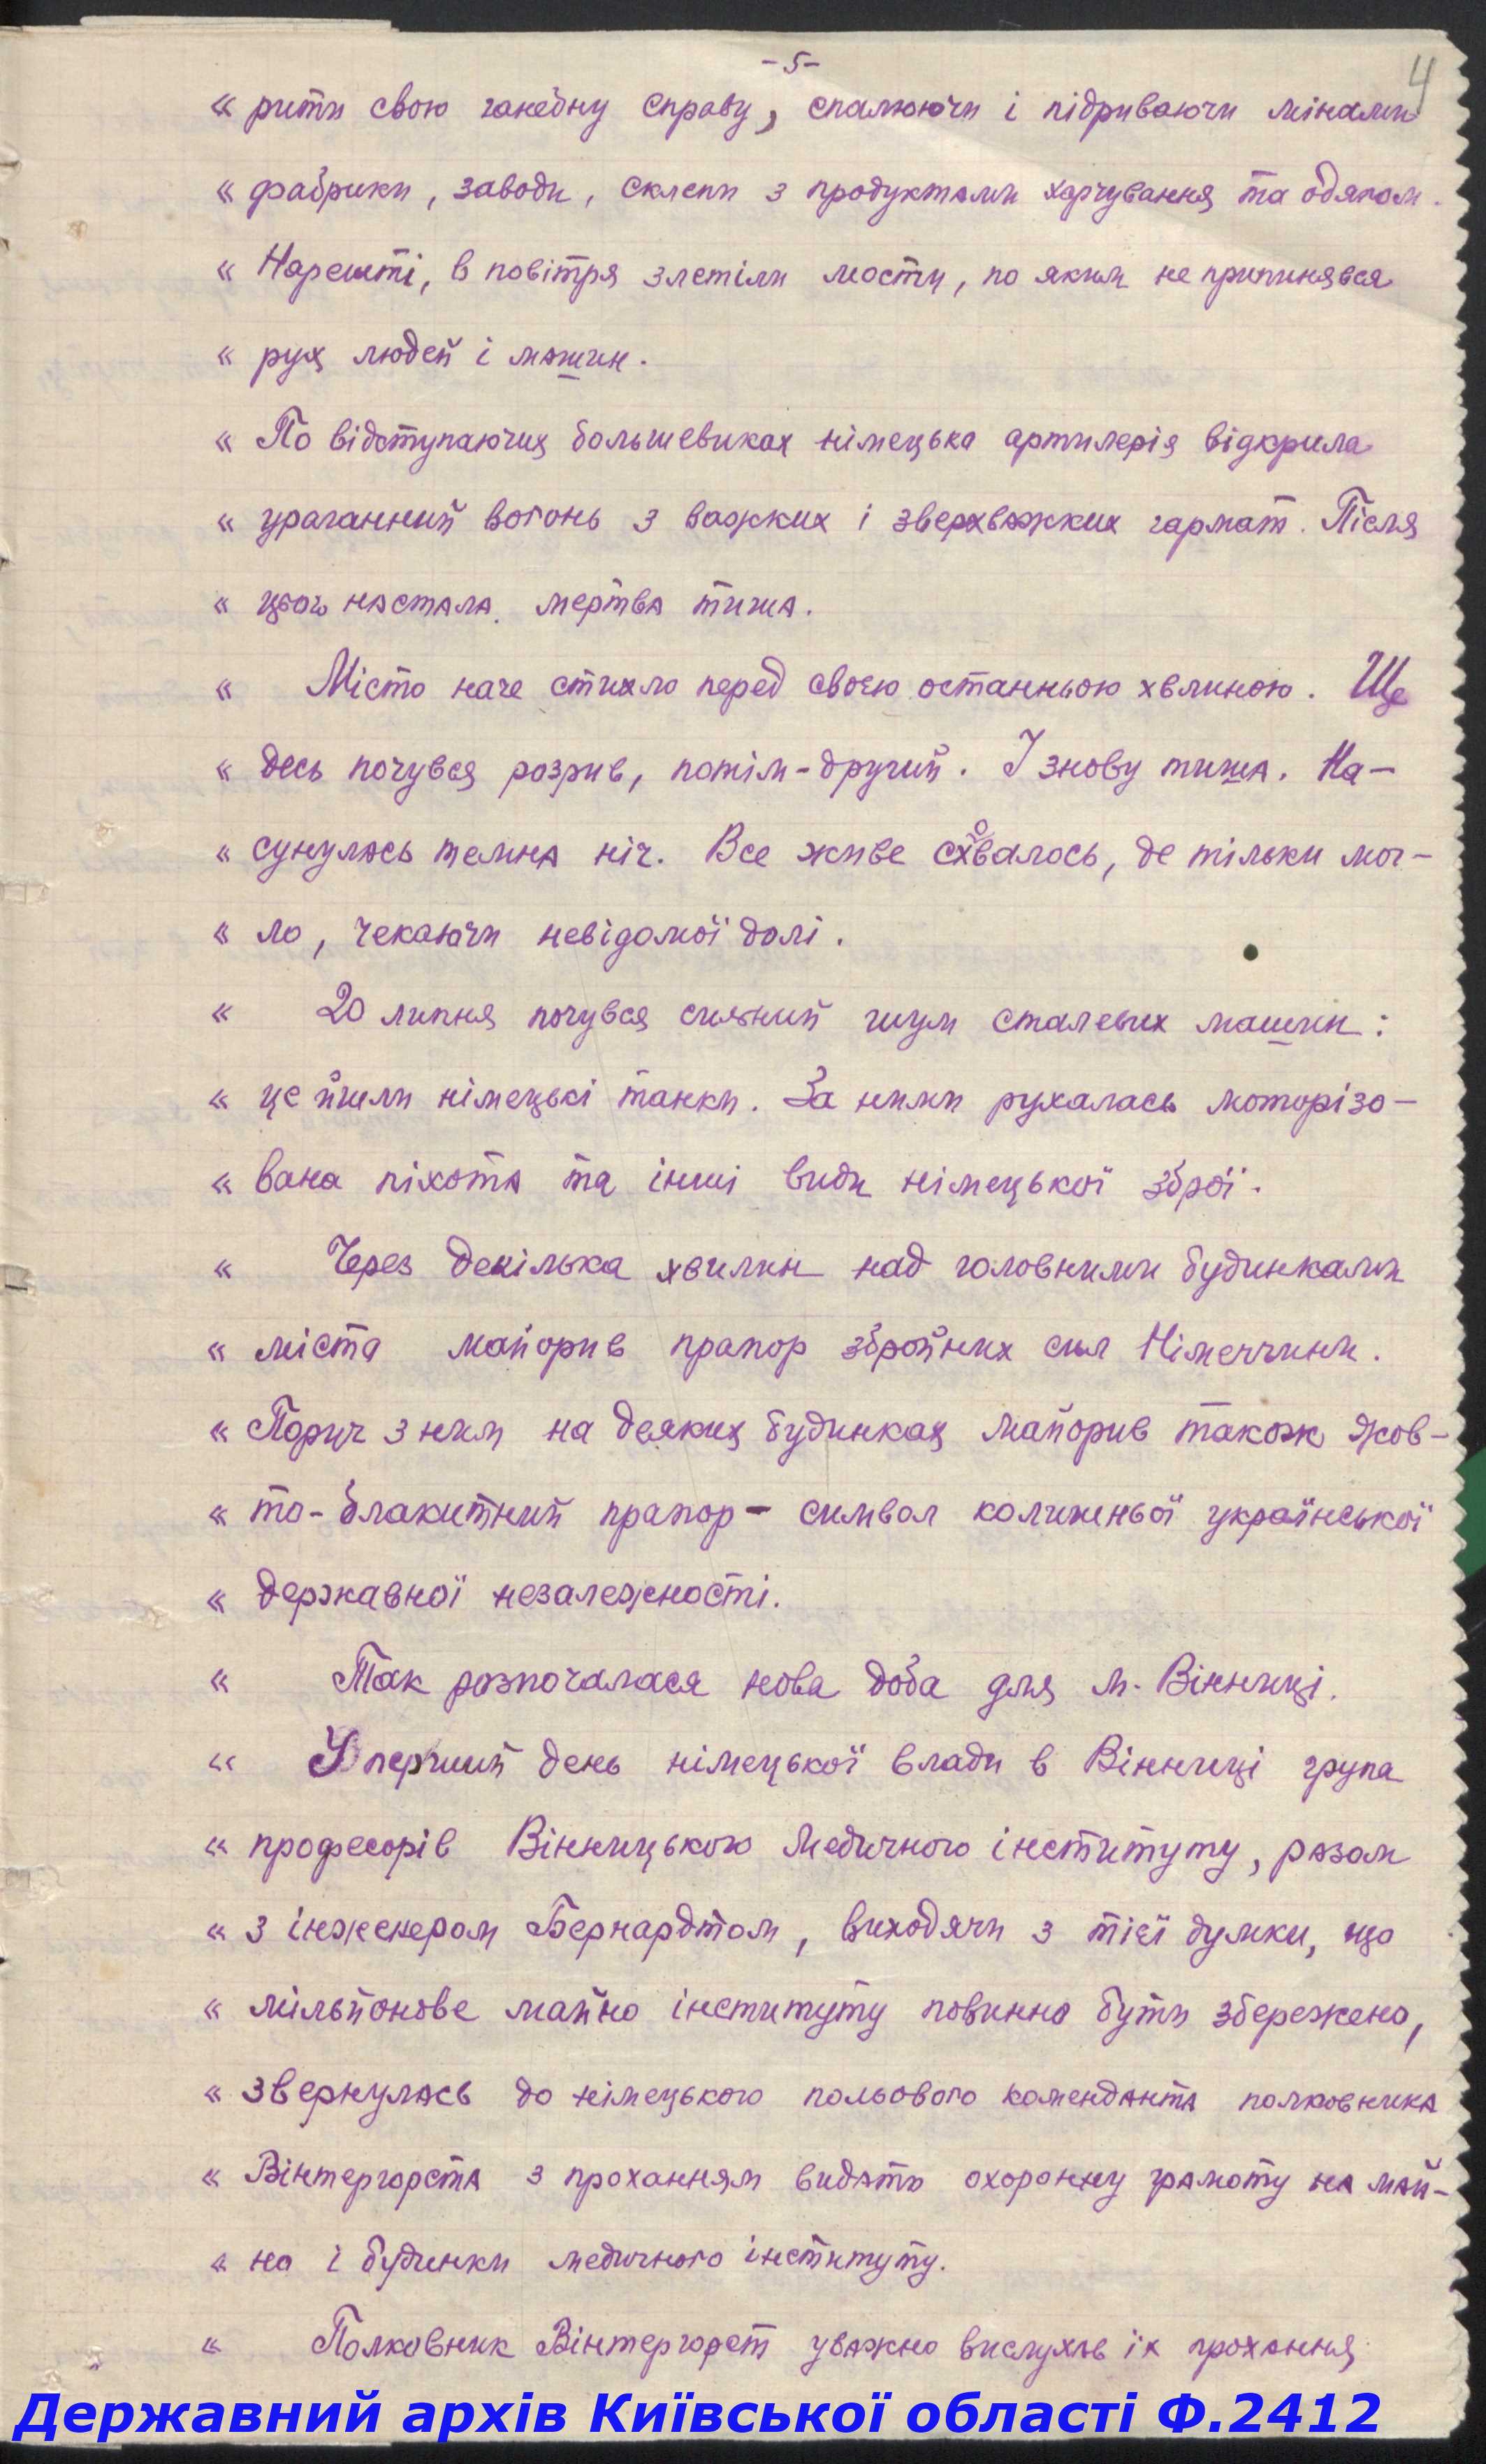 -5-
4
« рити свою ганебну справу, спалюючи і підриваючи мінами
« фабрики, заводи, склепи з продуктами харчування та одягом.
« Нарешті, в повітря злетіли мости, по яким не припинявся
« рух людей і машин.
« По відступаючих большевиках німецька артилерія відкрила
« ураганний вогонь з важких і зверхважких гармат. Після
« цього настала мертва тиша.
« Місто наче стихло перед своєю останньою хвилиною. Ще
« десь почувся розрив, потім-другий. І знову тиша. На-
« сунулась темна ніч. Все живе сховалось, де тільки мог-
« ло, чекаючи невідомої долі.
« 20 липня почувся сильний шум сталевих машин:
« це йшли німецькі танки. За ними рухалась моторізо-
« вана піхота та інші види німецької зброї.
« Через декілька хвилин над головними будинками
« міста майорив прапор збройних сил Німеччини.
« Поруч з ним на деяких будинках майорив також жов-
« то-блакитний прапор - символ колишньої української
« державної незалежності.
« Так розпочалася нова доба для м. Вінниці.
« У перший день німецької влади в Вінниці група
« професорів Вінницького Медичного інституту, разом
« з інженером Бернардтом, виходячи з тієї думки, що
« мільйонове майно інституту повинно бути збережено,
« звернулась до німецького польового коменданта полковника
« Вінтергорста з проханням видать охоронну грамоту на май-
« но і будинки медичного інституту.
« Полковник Вінтергорст уважно вислухав їх прохання
Державний архів Київської області Ф.2412